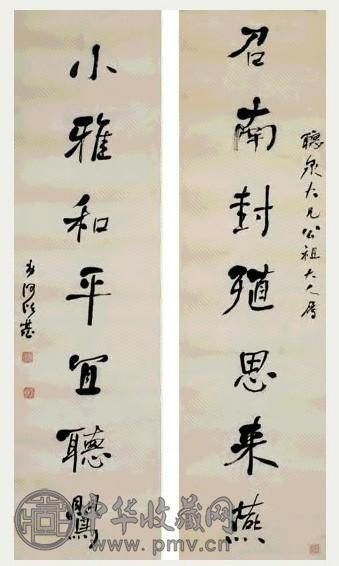 聽泉大兄公祖大人屬
召南封殖思来燕
小雅和平宜聽鸎
何紹基
中华收藏网
www.pmv.cn